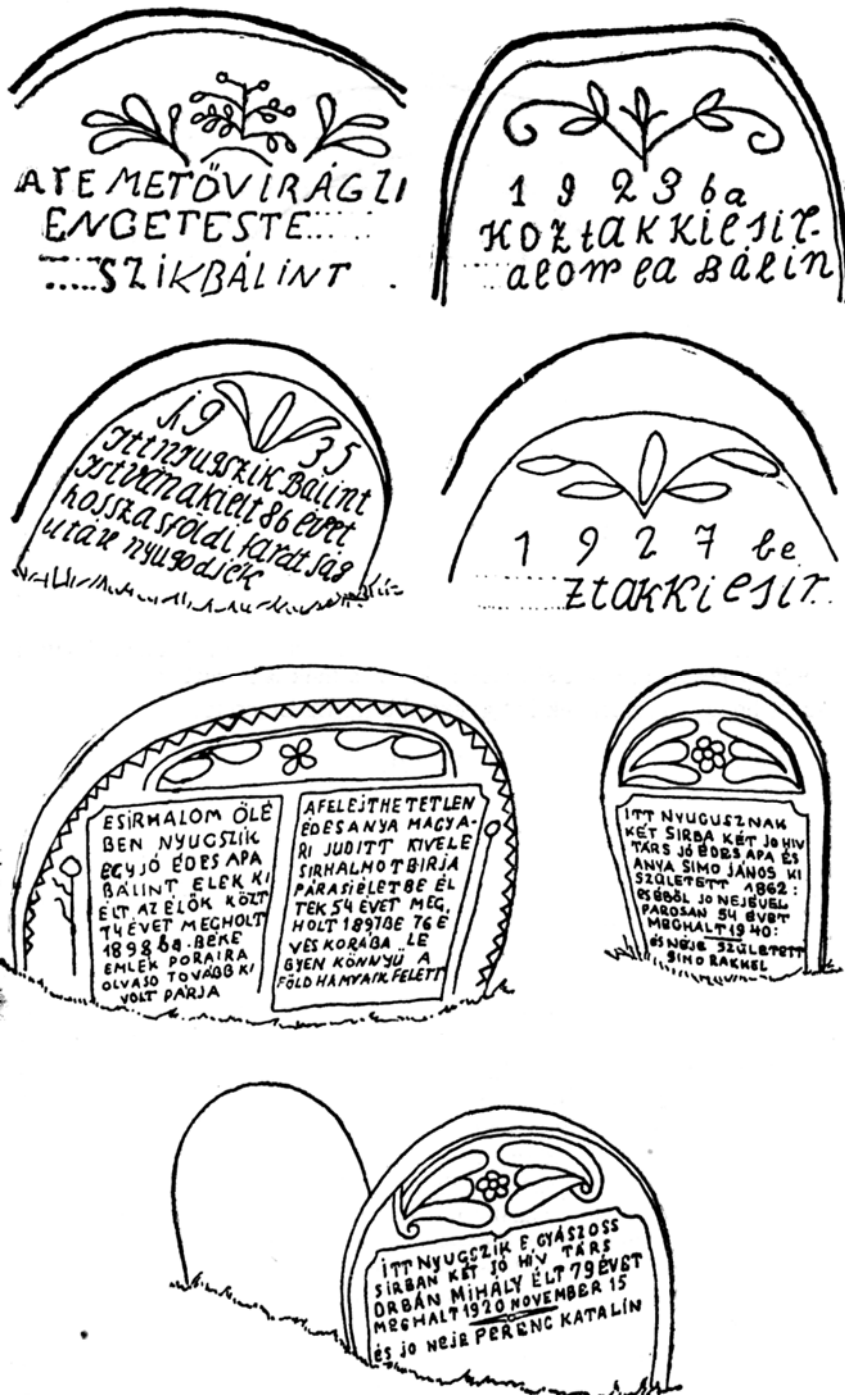 ATEMETŐVIRÁGZI
ENGETESTE.....
.....SZIKBÁLINT
1923ba
HOZtAKKiESiR-
alom la Bálin
1935
Ittnyugszik Bálint
Istvánakiélt 86 évet
hosszasföldi fárdtság
után nyugodjék
1927 be
ZtAKKiESiR..
ESIRHALOM ÖLÉ
BEN NYUGSZIK
EGYJÓ ÉDES APA
BÁLINT ELEK KI
ÉLT AZ ELŐK KÖZT
74 ÉVET MEGHOLT
1898ba. BÉKE
EMLÉK PORAIRA
OLVASO TOVÁBB KI
VOLT PÁRJA
AFELEJTHETETLEN
ÉDESANYA MAGYA-
RI JUDITT KIVELE
SIRHALMOTBIRJA
PÁRASIÉLETBE ÉL
TEK 54 ÉVET MEG,
HOLT 1897BE 76 É
VES KORÁBA LE
GYEN KÖNNYÜ A
FÖLD HAMVAIK FELETT
ITT NYUGUSZNAK
KÉT SIRBA KÉT JO HIV
TÁRS JÓ ÉDES APA ÉS
ANYA SIMO JÁNOS KI
SZÜLETETT 1862:
ESÉBÖL JO NEJÉVEL
PÁROSAN 54 ÉVET
MEGHALT 1940:
és NÉJE SZÜLETETT
SIMO RAKKEL
ITT NYUGSZIK E GYÁSZOSS
SIRBAN KÉT JÓ HIV TÁRS
ORBÁN MIHÁLY ÉLT 79 ÉVET
MEGHALT 1920 NOVEMBER 15
és jo NEJE FERENC KATALIN